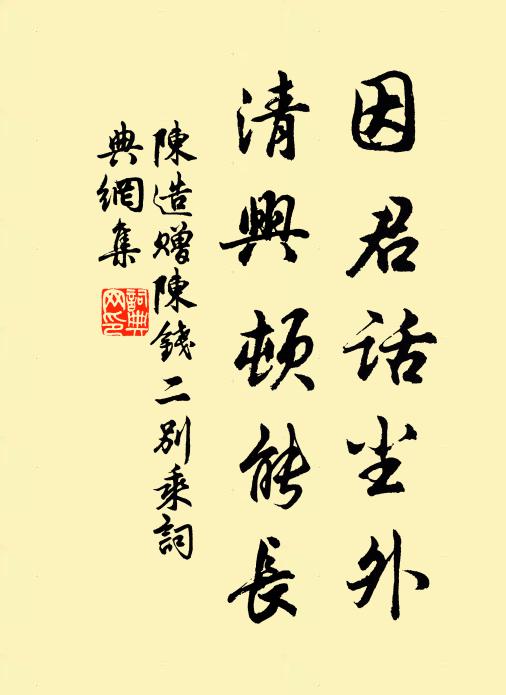 因君話尘外
清興頓能長
陳造贈陳錢二別乘詞
典網集
詞典
网印